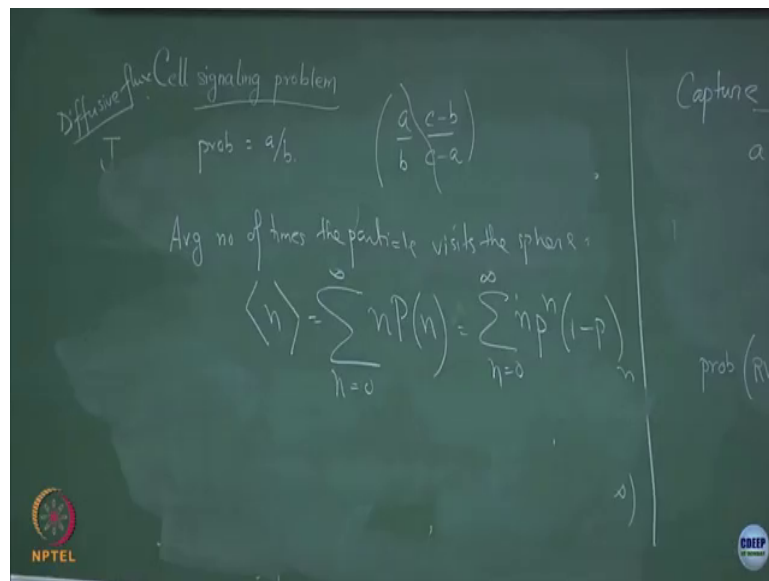 Diffusive flux
J
Cell signaling problem
prob = a/b.
(a/b c-b/c-a)
Avg no of times the particle visits the sphere:
⟨n⟩ = ∑_{n=0}^{∞} n P(n) = ∑_{n=0}^{∞} n p^n (1-p)
n
∞)
Capture
a
prob (
NPTEL
CDEEP